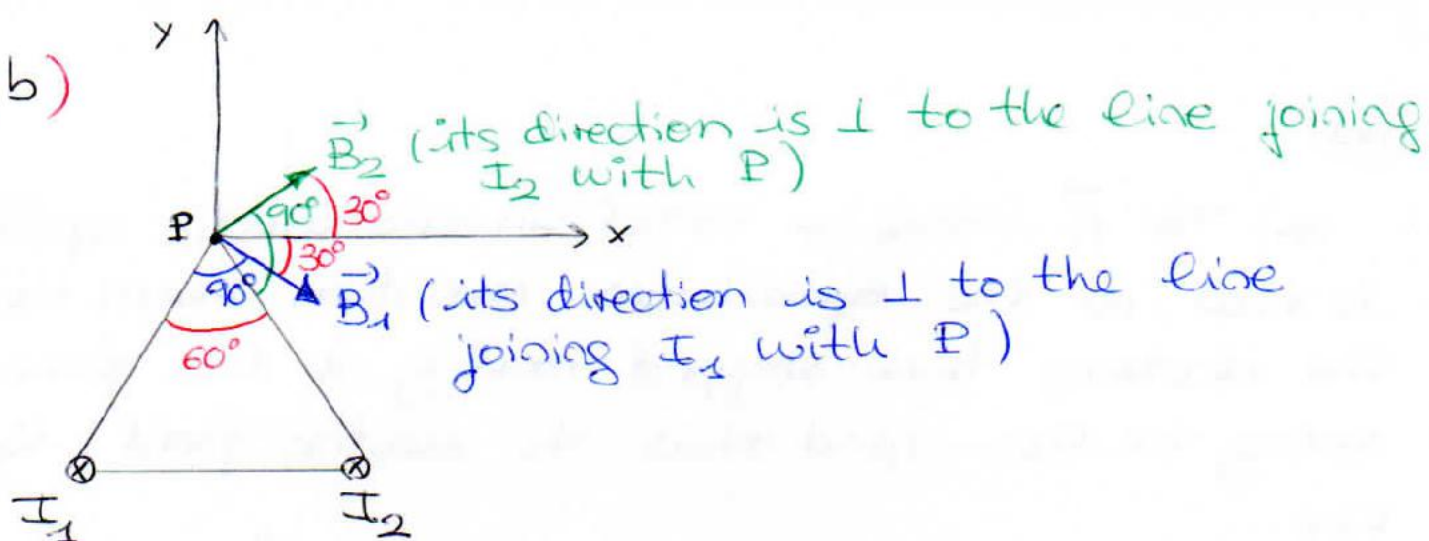 y
b)
B⃗₂ (its direction is ⊥ to the line joining
I₂ with P)
90° 30°
P
x
30°
90°
B⃗₁ (its direction is ⊥ to the line
joining I₁ with P)
60°
I₁
I₂